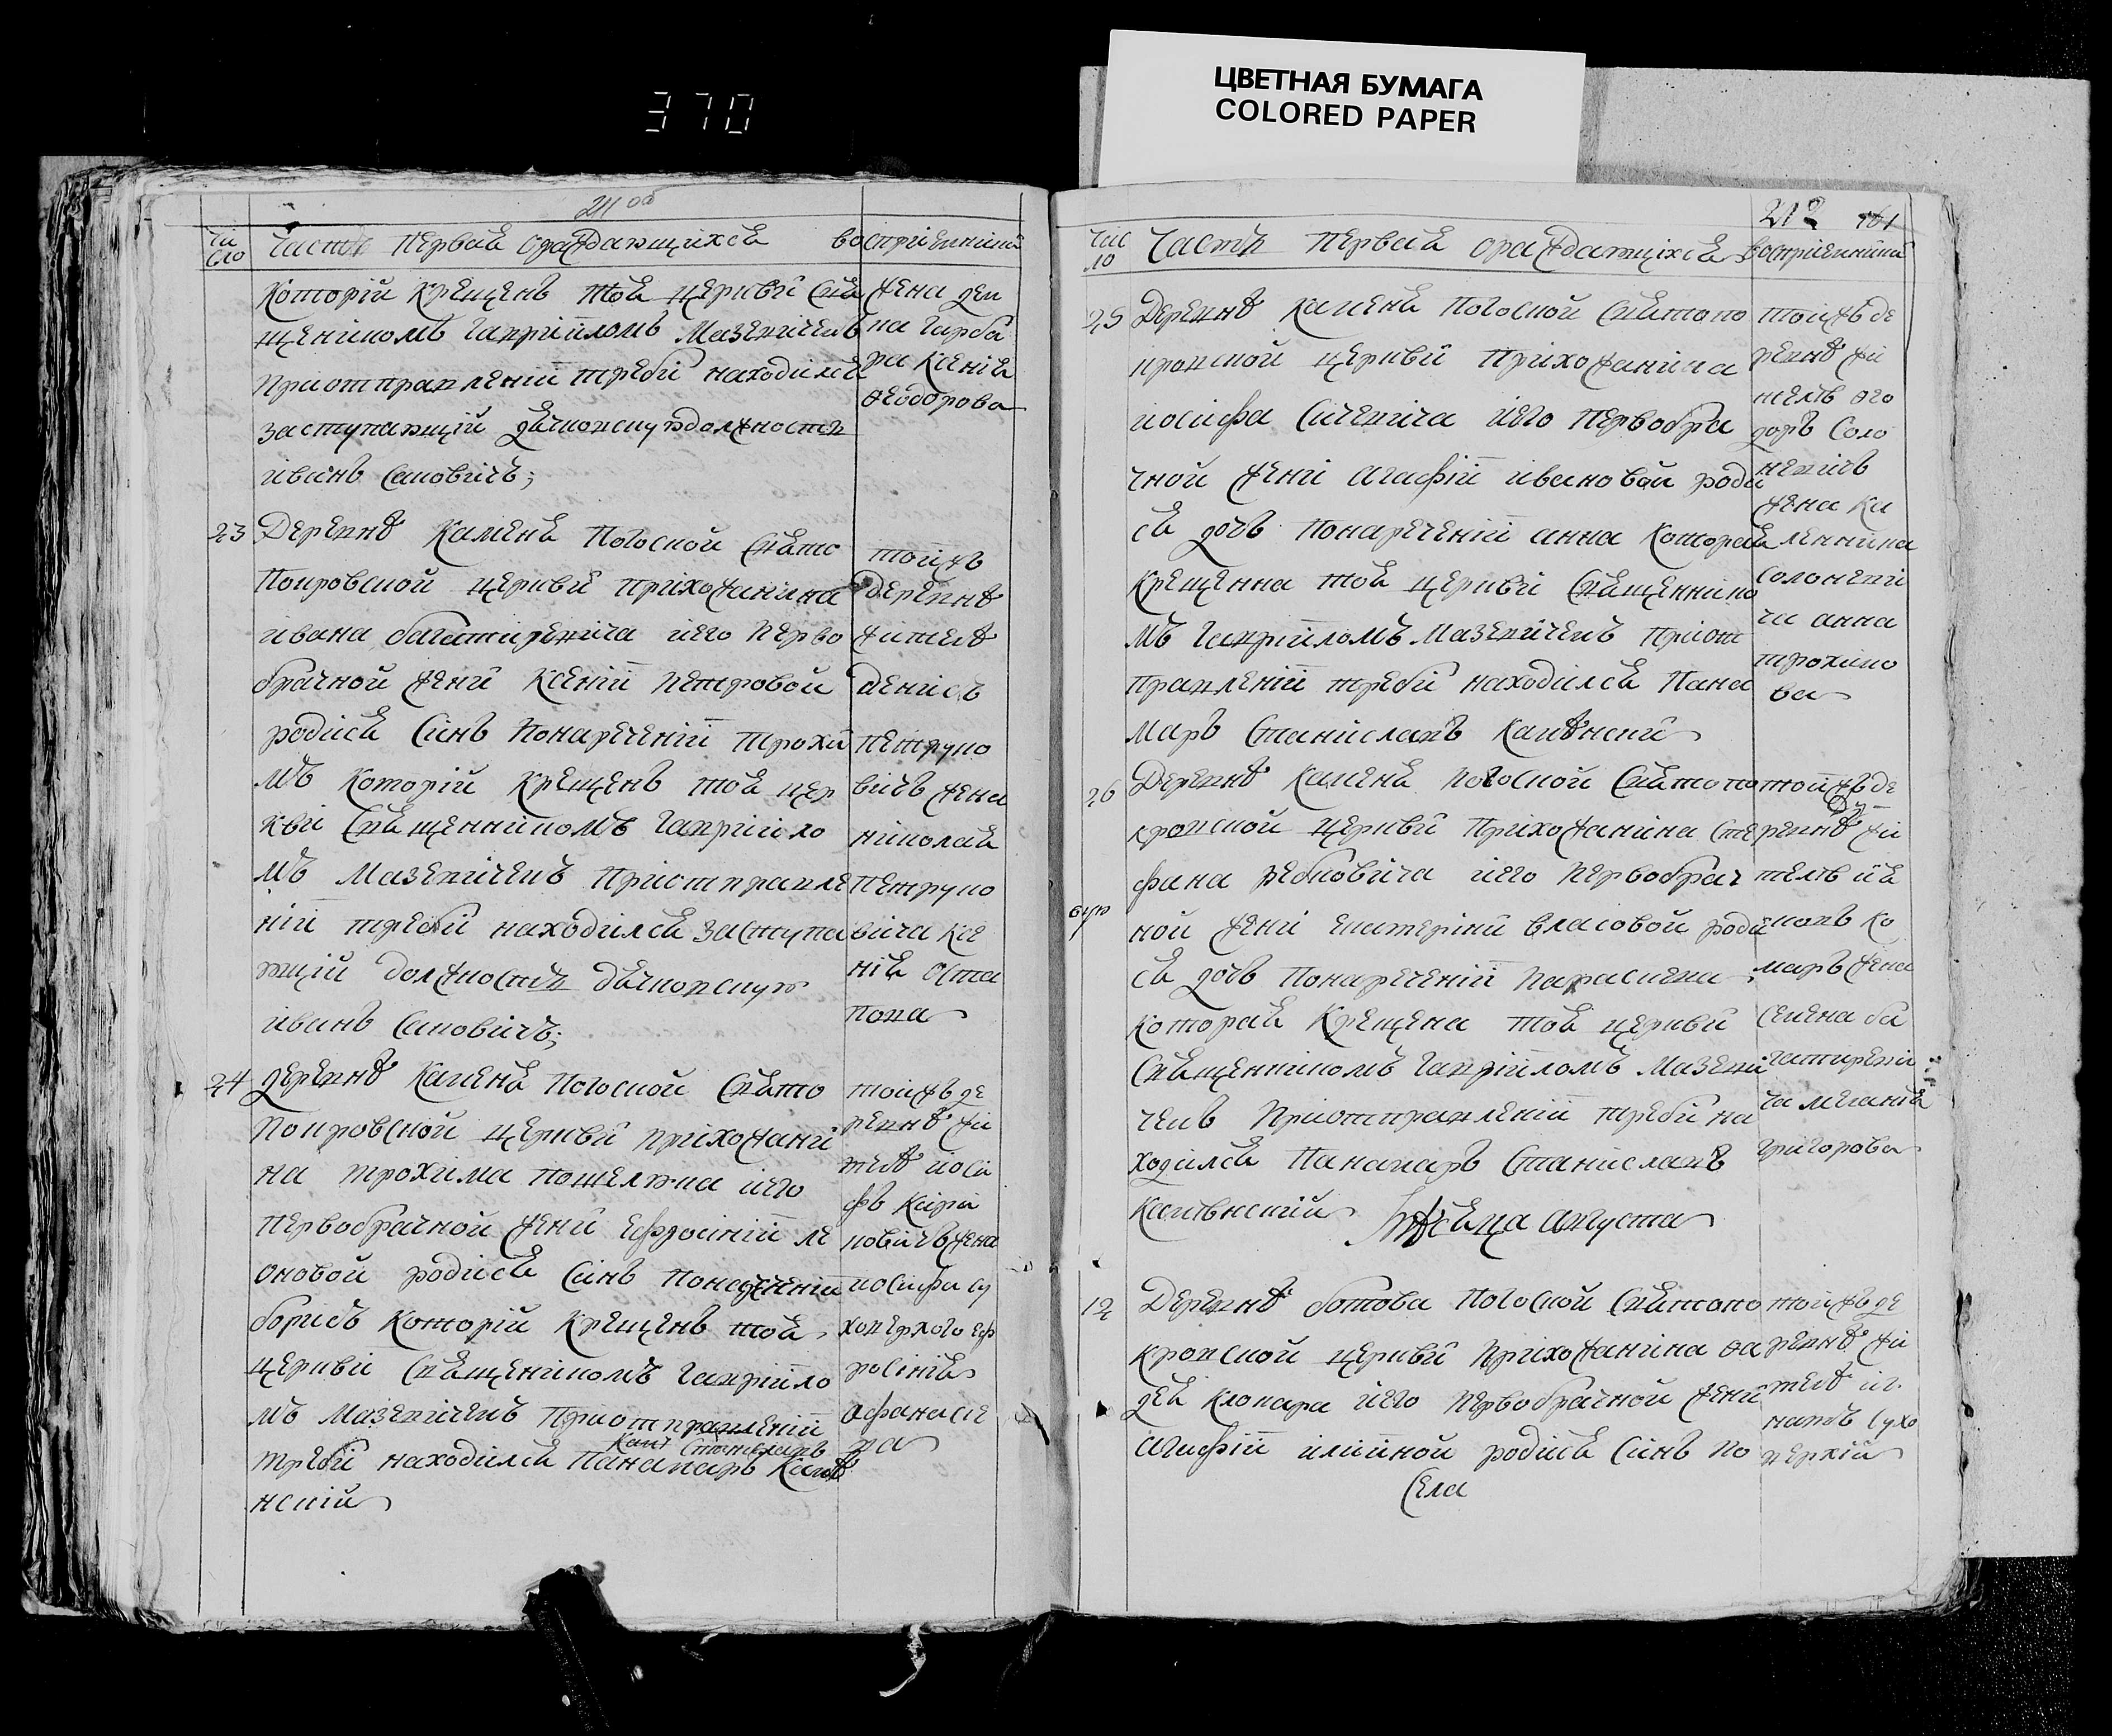 370
ЦВЕТНАЯ БУМАГА
COLORED PAPER
211 об
Чи
сло
Часть первая ораждающихся
воспріемники
который крещенъ тоя церкви свя
щеникомъ Гавріиломъ Мазевичемъ
приотправленіи требы находился
заступающій дячковскую должность
иванъ Саковичъ;
жена дем
на Гарба
ра Ксенія
Феодорова
23
Деревнѣ Каменя Погосной Свято
Покровской церкви прихожанина
ивана багатиревича иего перво
брачной жены Ксеніи Петровой
родися синъ понареченіи трохи
мъ который крещенъ тоя цер
кви священникомъ Гавріило
мъ Мазевичемъ Приотправле
ніи требы находился заступа
ющій должность дячковскую
иванъ Саковичъ;
тойжъ
деревнѣ
житель
денисъ
петруко
вичъ жена
николая
петруко
вича Ксе
нія Оста
пова
24
деревнѣ Каменя Погосной Свято
Покровской церкви прихожани
на трохима Пошелюка иего
первобрачной жены Ефросиніи ле
оновой родися синъ понареченіи
борисъ который крещенъ тоя
церкви Священикомъ Гавріило
мъ Мазевичемъ Приотправленіи
Станиславъ
требы находился Панамаръ Каеѣ
нскій
тойжъ де
ревнѣ жи
тель иоси
фъ Кири
ковичъ жена
иосифа су
ховерхого еф
росинія
Афанасіе
ва
212 161
Чис
ло
Часть первая ораждающихся
воспріемники
25
Деревнѣ Каменя Погосной Святопо
кровской церкви прихожанина
иосифа Сичевича иего первобра
чной жены агафіи ивановой роди
ся дочъ понареченіи анна которая
крещенна тоя церкви священнико
мъ Гавріиломъ Мазевичемъ приот
правленіи требы находился Пана
маръ Станиславъ
тойжъ де
ревнѣ жи
тель фео
доръ Соло
невичъ
жена Ка
ленника
Солоневи
ча анна
трохимо
ва
26
Деревнѣ Каменя Погосной Святопо
кровской церкви прихожанина сте
фана Рабковича иего первобрач
ной жены екатерины власовой роди
ся дочъ понареченіи Параскева
которая крещена тоя церкви
священникомъ Гавріиломъ Мазеви
чемъ приотправленіи требы на
ходился Панамаръ Станиславъ
тойжъ де
ревнѣ жи
тель
маръ жена
Семена ба
гатиреви
ча меланія
григорова
Мѣсяца августа
12
Деревнѣ ботова Погосной Святопо
кровской церкви прихожанина фа
дея Клопара иего первобрачной жены
агафіи илииной родися синъ по
тойжъ де
ревнѣ жи
тель иг
натъ Сухо
верхій
Села